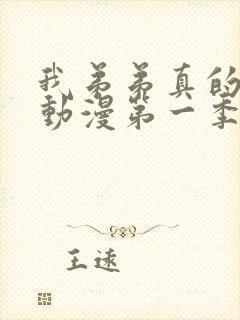 我弟弟真的
動漫第一季
王遠